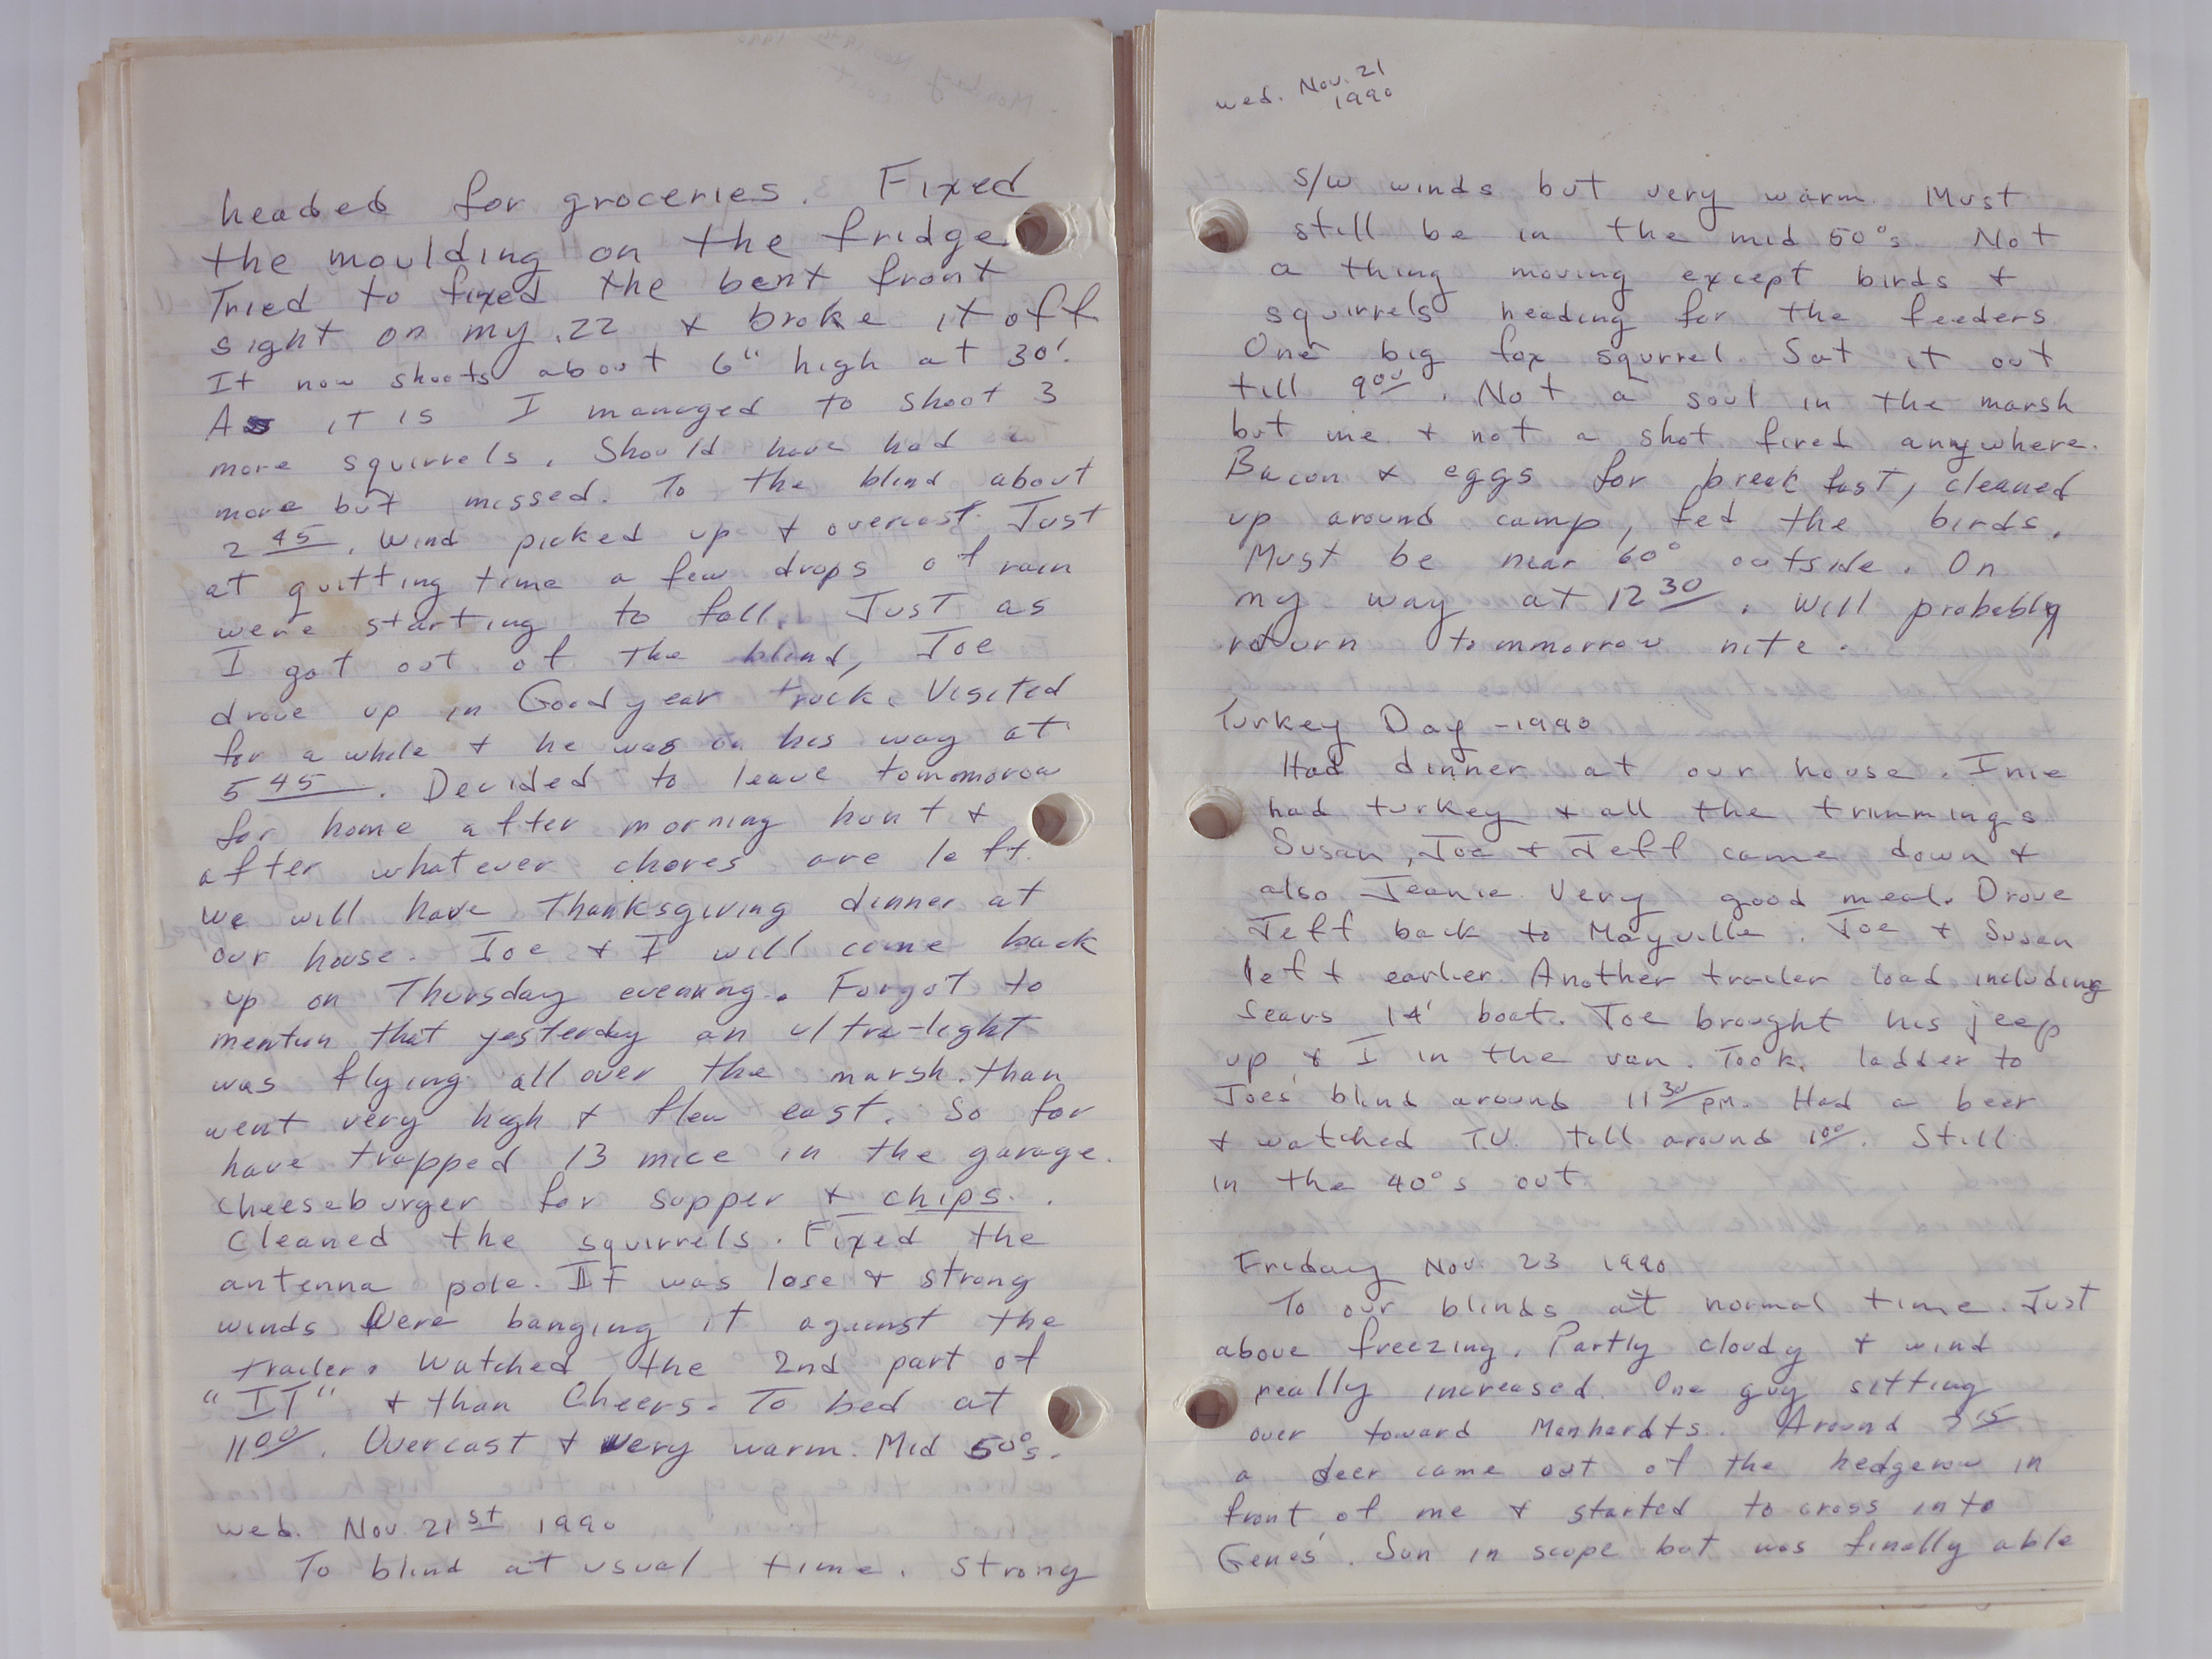 headed for groceries. Fixed
the moulding on the fridge
Tried to fixed the bent front
sight on my .22 & broke it off
It now shoots about 6" high at 30'.
As it is I managed to shoot 3
more squirrels. Should have had a
more but missed. To the blind about
2 45. Wind picked up & overcast. Just
at quitting time a few drops of rain
were starting to fall. Just as
I got out of the blind, Joe
drove up in Goodyear truck. Visited
for a while & he was on his way at
5 45. Decided to leave tommorow
for home after morning hunt &
after whatever chores are left.
We will have Thanksgiving dinner at
our house. Joe & I will come back
up on Thursday evening. Forgot to
mention that yesterday an ultra-light
was flying all over the marsh. than
went very high & flew east. So far
have trapped 13 mice in the garage.
Cheeseburger for supper & chips.
Cleaned the squirrels. Fixed the
antenna pole. It was lose & strong
winds were banging it against the
trailer. Watched the 2nd part of
"IT" & than Cheers. To bed at
11 00. Overcast & very warm. Mid 50°s.
Wed. Nov. 21st 1990
To blind at usual time. Strong
wed. Nov. 21
1990
s/w winds but very warm. Must
still be in the mid 50°s. Not
a thing moving except birds &
squirrels heading for the feeders
One big fox squrrel. Sat it out
till 9 00. Not a soul in the marsh
but me & not a shot fired anywhere.
Bacon & eggs for breakfast, cleaned
up around camp, fed the birds.
Must be near 60° outside. On
my way at 12 30. Will probably
return tommorrow nite.
Turkey Day - 1990
Had dinner at our house.
had turkey & all the trimmings
Susan, Joe & Jeff came down &
also Jeanie. Very good meal. Drove
Jeff back to Mayville. Joe & Susan
left earlier. Another trailer load including
Sears 14' boat. Joe brought his jeep
up & I in the van. Took ladder to
Joes' blind around 11 30 PM. Had a beer
& watched T.V. till around 1 00. Still
in the 40°s out
Friday Nov. 23 1990
To our blinds at normal time. Just
above freezing. Partly cloudy & wind
really increased. One guy sitting
over toward Manhardts. Around
a deer came out of the hedgerow in
front of me & started to cross into
Genes'. Sun in scope but was finally able